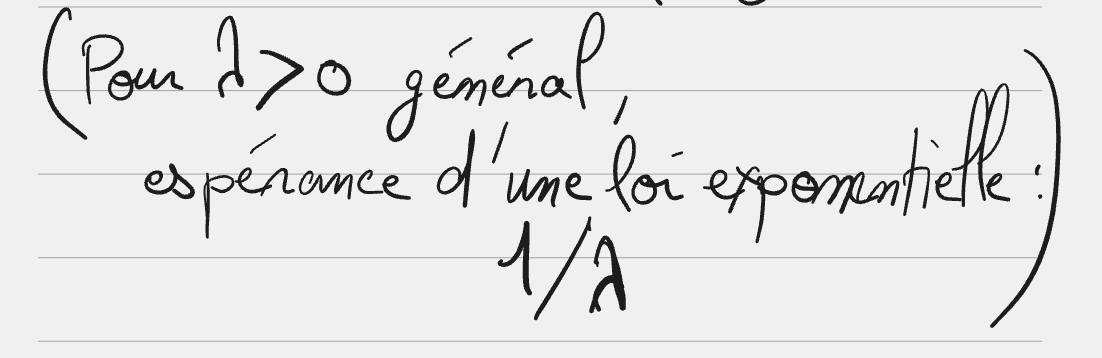 (Pour λ>0 général,
espérance d'une loi exponentielle :
1/λ)